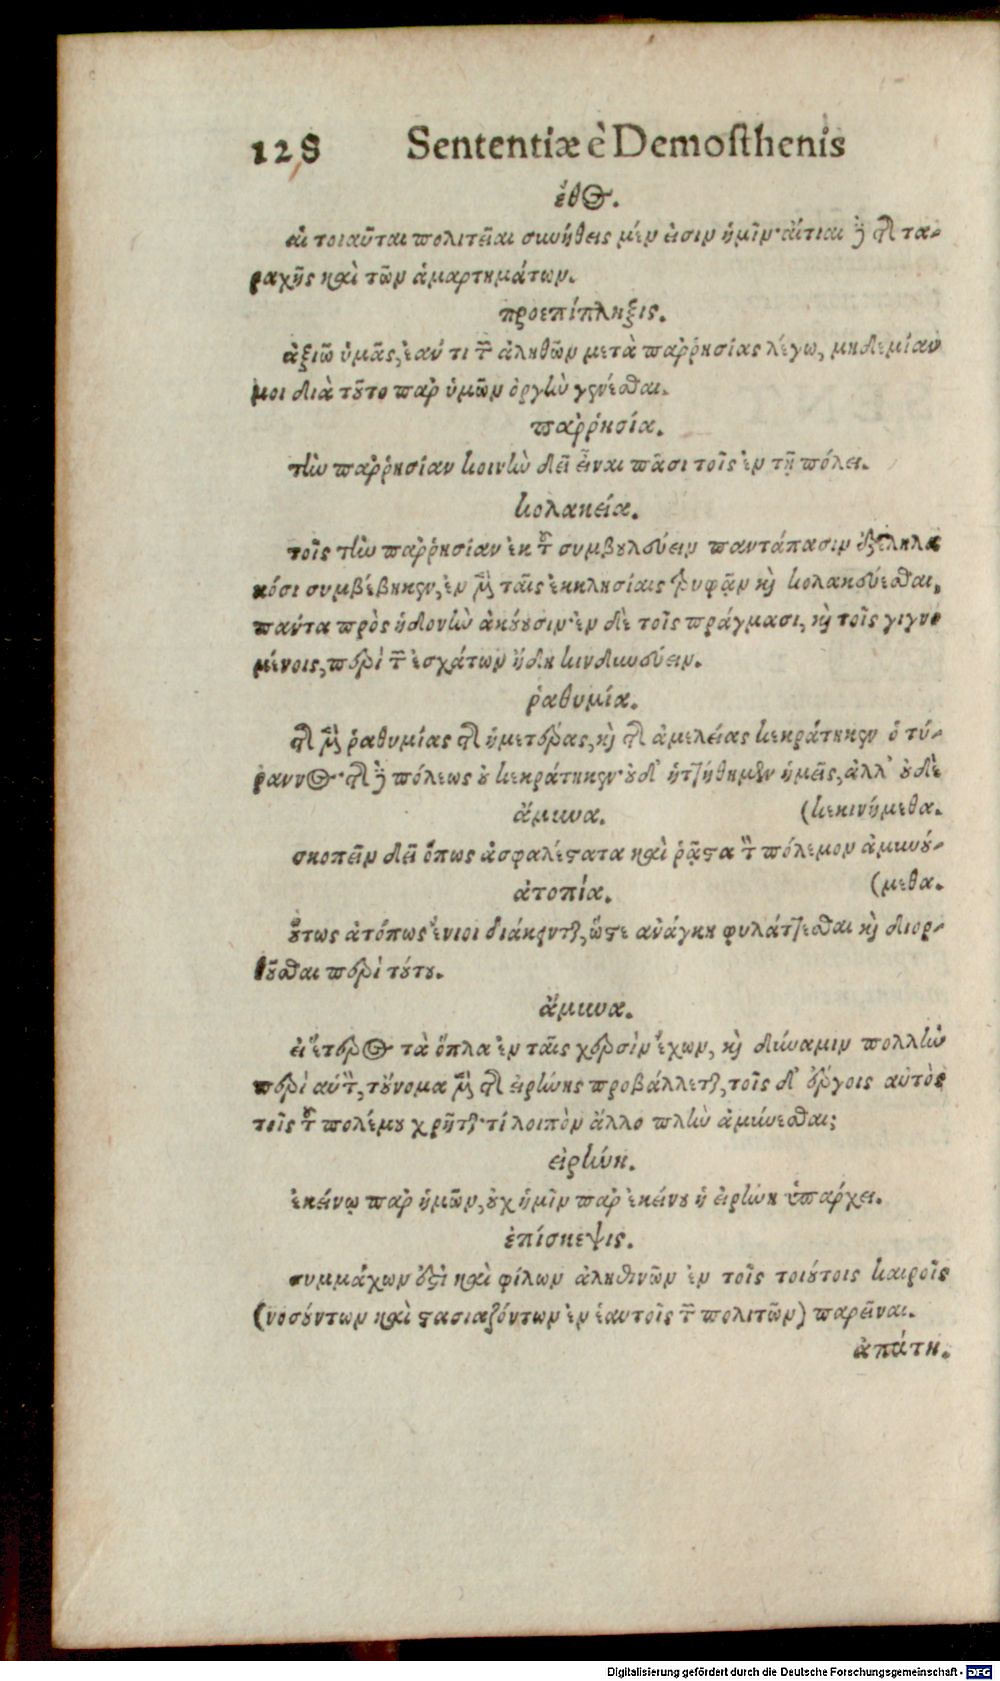 128 Sententiæ è Demosthenis
ἔθος.
αἱ τοιαῦται πολιτεῖαι συνήθεις μέν εἰσιν ἡμῖν· αἴτιαι δὲ τῆς τα-
ραχῆς καὶ τῶν ἁμαρτημάτων.
προεπίπληξις.
ἀξιῶ ὑμᾶς, ἐάν τι τῶν ἀληθῶν μετὰ παῤῥησίας λέγω, μηδεμίαν
μοι διὰ τοῦτο παρ ὑμῶν ὀργὴν γενέσθαι.
παῤῥησία.
τὴν παῤῥησίαν κοινὴν δεῖ εἶναι πᾶσι τοῖς ἐν τῇ πόλει.
κολακεία.
τοῖς τὴν παῤῥησίαν ἐκ τοῦ συμβουλεύειν παντάπασιν ἐξεληλα
κόσι συμβέβηκεν, ἐν μὲν ταῖς ἐκκλησίαις τρυφᾷν καὶ κολακεύεσθαι,
πάντα πρὸς ἡδονὴν ἀκούουσιν· ἐν δὲ τοῖς πράγμασι, καὶ τοῖς γιγνο
μένοις, περὶ τῶν ἐσχάτων ἤδη κινδυνεύειν.
ῥαθυμία.
τῆς μὲν ῥαθυμίας τῆς ἡμετέρας, καὶ τῆς ἀμελείας κεκράτηκεν ὁ τύ-
ραννος· τῆς δὲ πόλεως οὐ κεκράτηκεν· οὐδ' ἡττήθημεν ἡμεῖς, ἀλλ' οὐδὲ
(κεκινήμεθα.
ἄμυνα.
σκοπεῖν δεῖ ὅπως ἀσφαλέστατα καὶ ῥᾷστα τὸν πόλεμον ἀμυνού-
(μεθα.
ἀτοπία.
οὕτως ἀτόπως ἔνιοι διάκενται, ὥστε ἀνάγκη φυλάττεσθαι καὶ διορ-
θοῦσθαι περὶ τούτου.
ἄμυνα.
εἰ ἕτερος τὰ ὅπλα ἐν ταῖς χερσὶν ἔχων, καὶ δύναμιν πολλὴν
περὶ αὑτὸν, τοὔνομα μὲν τῆς εἰρήνης προβάλλεται, τοῖς δ' ἔργοις αὐτὸς
τοῖς τοῦ πολέμου χρῆται· τί λοιπὸν ἄλλο πλὴν ἀμύνεσθαι;
εἰρήνη.
ἐκείνῳ παρ ἡμῶν, οὐχ ἡμῖν παρ ἐκείνου ἡ εἰρήνη ὑπάρχει.
ἐπίσκεψις.
συμμάχων ἐστὶ καὶ φίλων ἀληθινῶν ἐν τοῖς τοιούτοις καιροῖς
(νοσούντων καὶ στασιαζόντων ἐν ἑαυτοῖς τῶν πολιτῶν) παρεῖναι.
ἀπάτη.
Digitalisierung gefördert durch die Deutsche Forschungsgemeinschaft - DFG